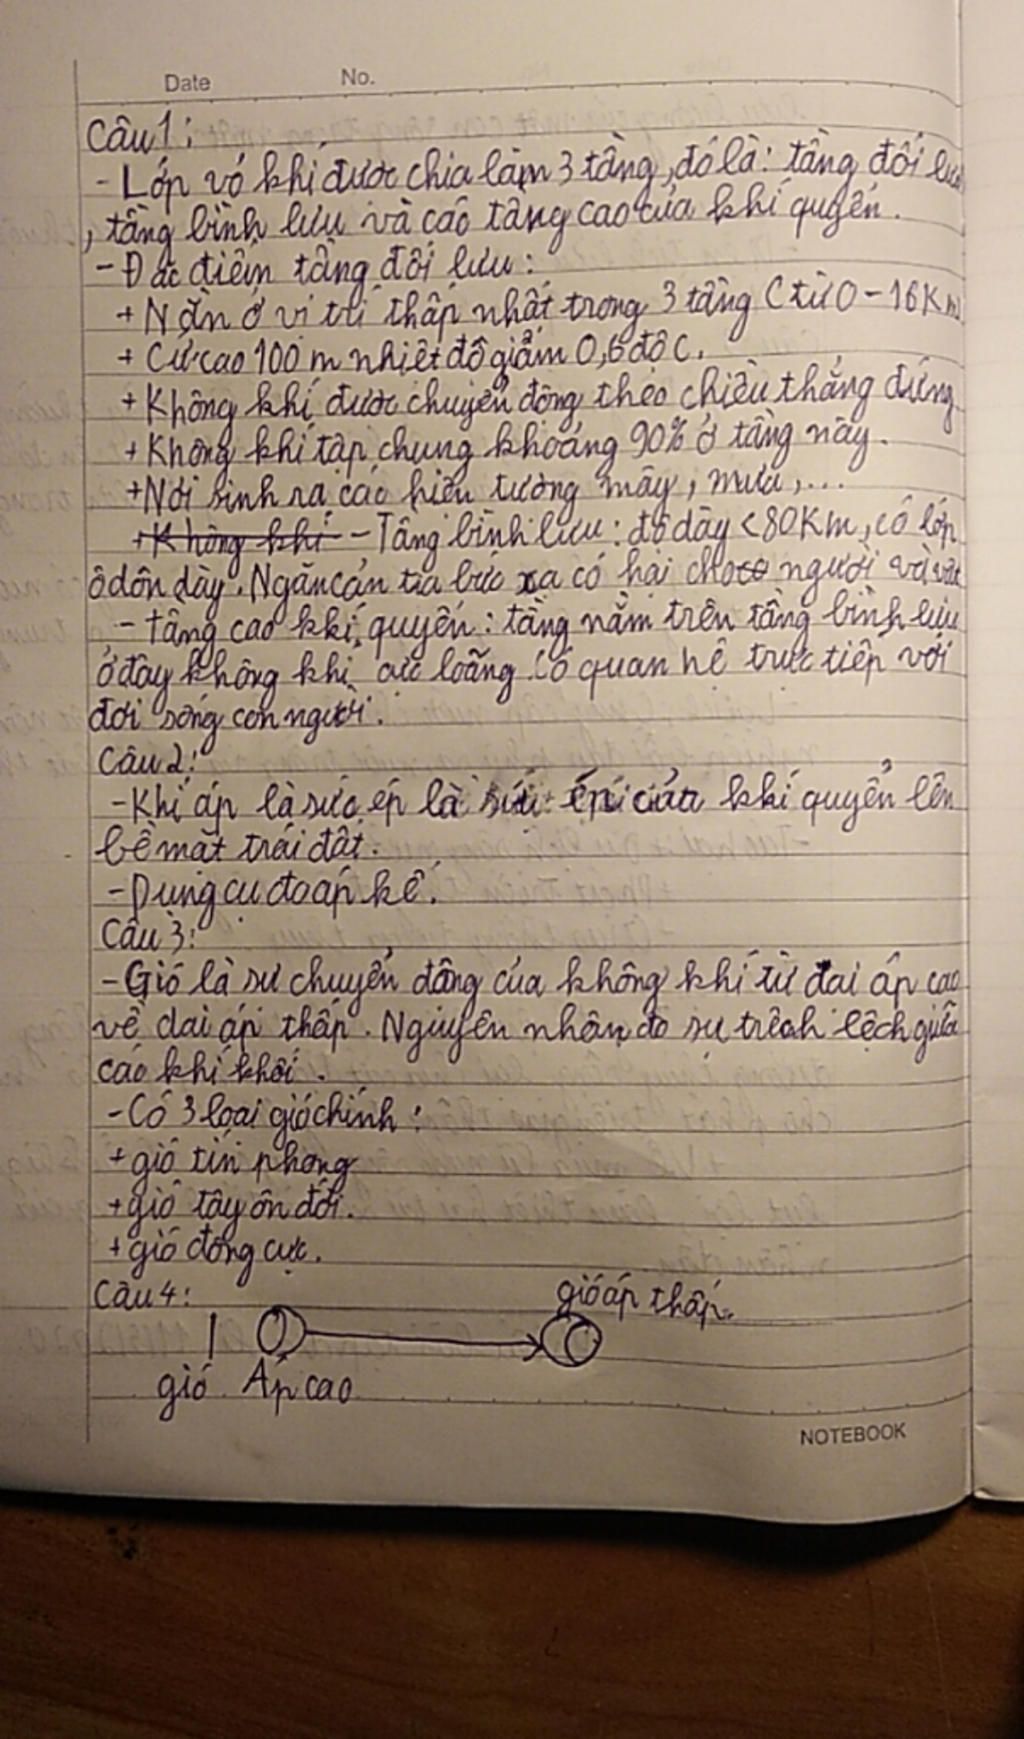 Date No.
Câu 1:
- Lớp vỏ khí được chia làm 3 tầng, đó là: tầng đối lưu
, tầng bình lưu và các tầng cao của khí quyển.
- Đặc điểm tầng đối lưu:
+ Nằn ở vị trí thấp nhất trong 3 tầng (từ 0 - 16 Km)
+ Cứ cao 100 m nhiệt độ giảm 0,6 độ C.
+ Không khí được chuyển động theo chiều thẳng đứng
+ Không khí tập chung khoảng 90% ở tầng này.
+ Nơi sinh ra các hiện tượng mây, mưa,...
+ Không khí - Tầng bình lưu: độ dày < 80 Km, có lớp
ôdôn dày. Ngăn cản tia bức xạ có hại cho người và vật
- tầng cao khí quyển: tầng nằm trên tầng bình lưu
ở đây không khí cực loãng. Có quan hệ trực tiếp với
đời sống con người.
Câu 2:
- Khí áp là sức ép là sức ép của khí quyển lên
bề mặt trái đất.
- Dụng cụ đo áp kế.
Câu 3:
- Gió là sự chuyển động của không khí từ đai áp cao
về đai áp thấp. Nguyên nhân do sự trênh lệch giữa
các khí khối.
- Có 3 loại gió chính:
+ gió tín phong
+ gió tây ôn đới.
+ gió đông cực.
Câu 4:
gió áp thấp.
gió Áp cao
NOTEBOOK